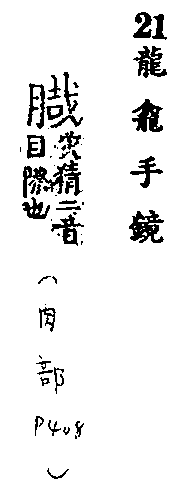 21龍龕手鏡
䏁
炎猜二音
目際也
(肉部P408)